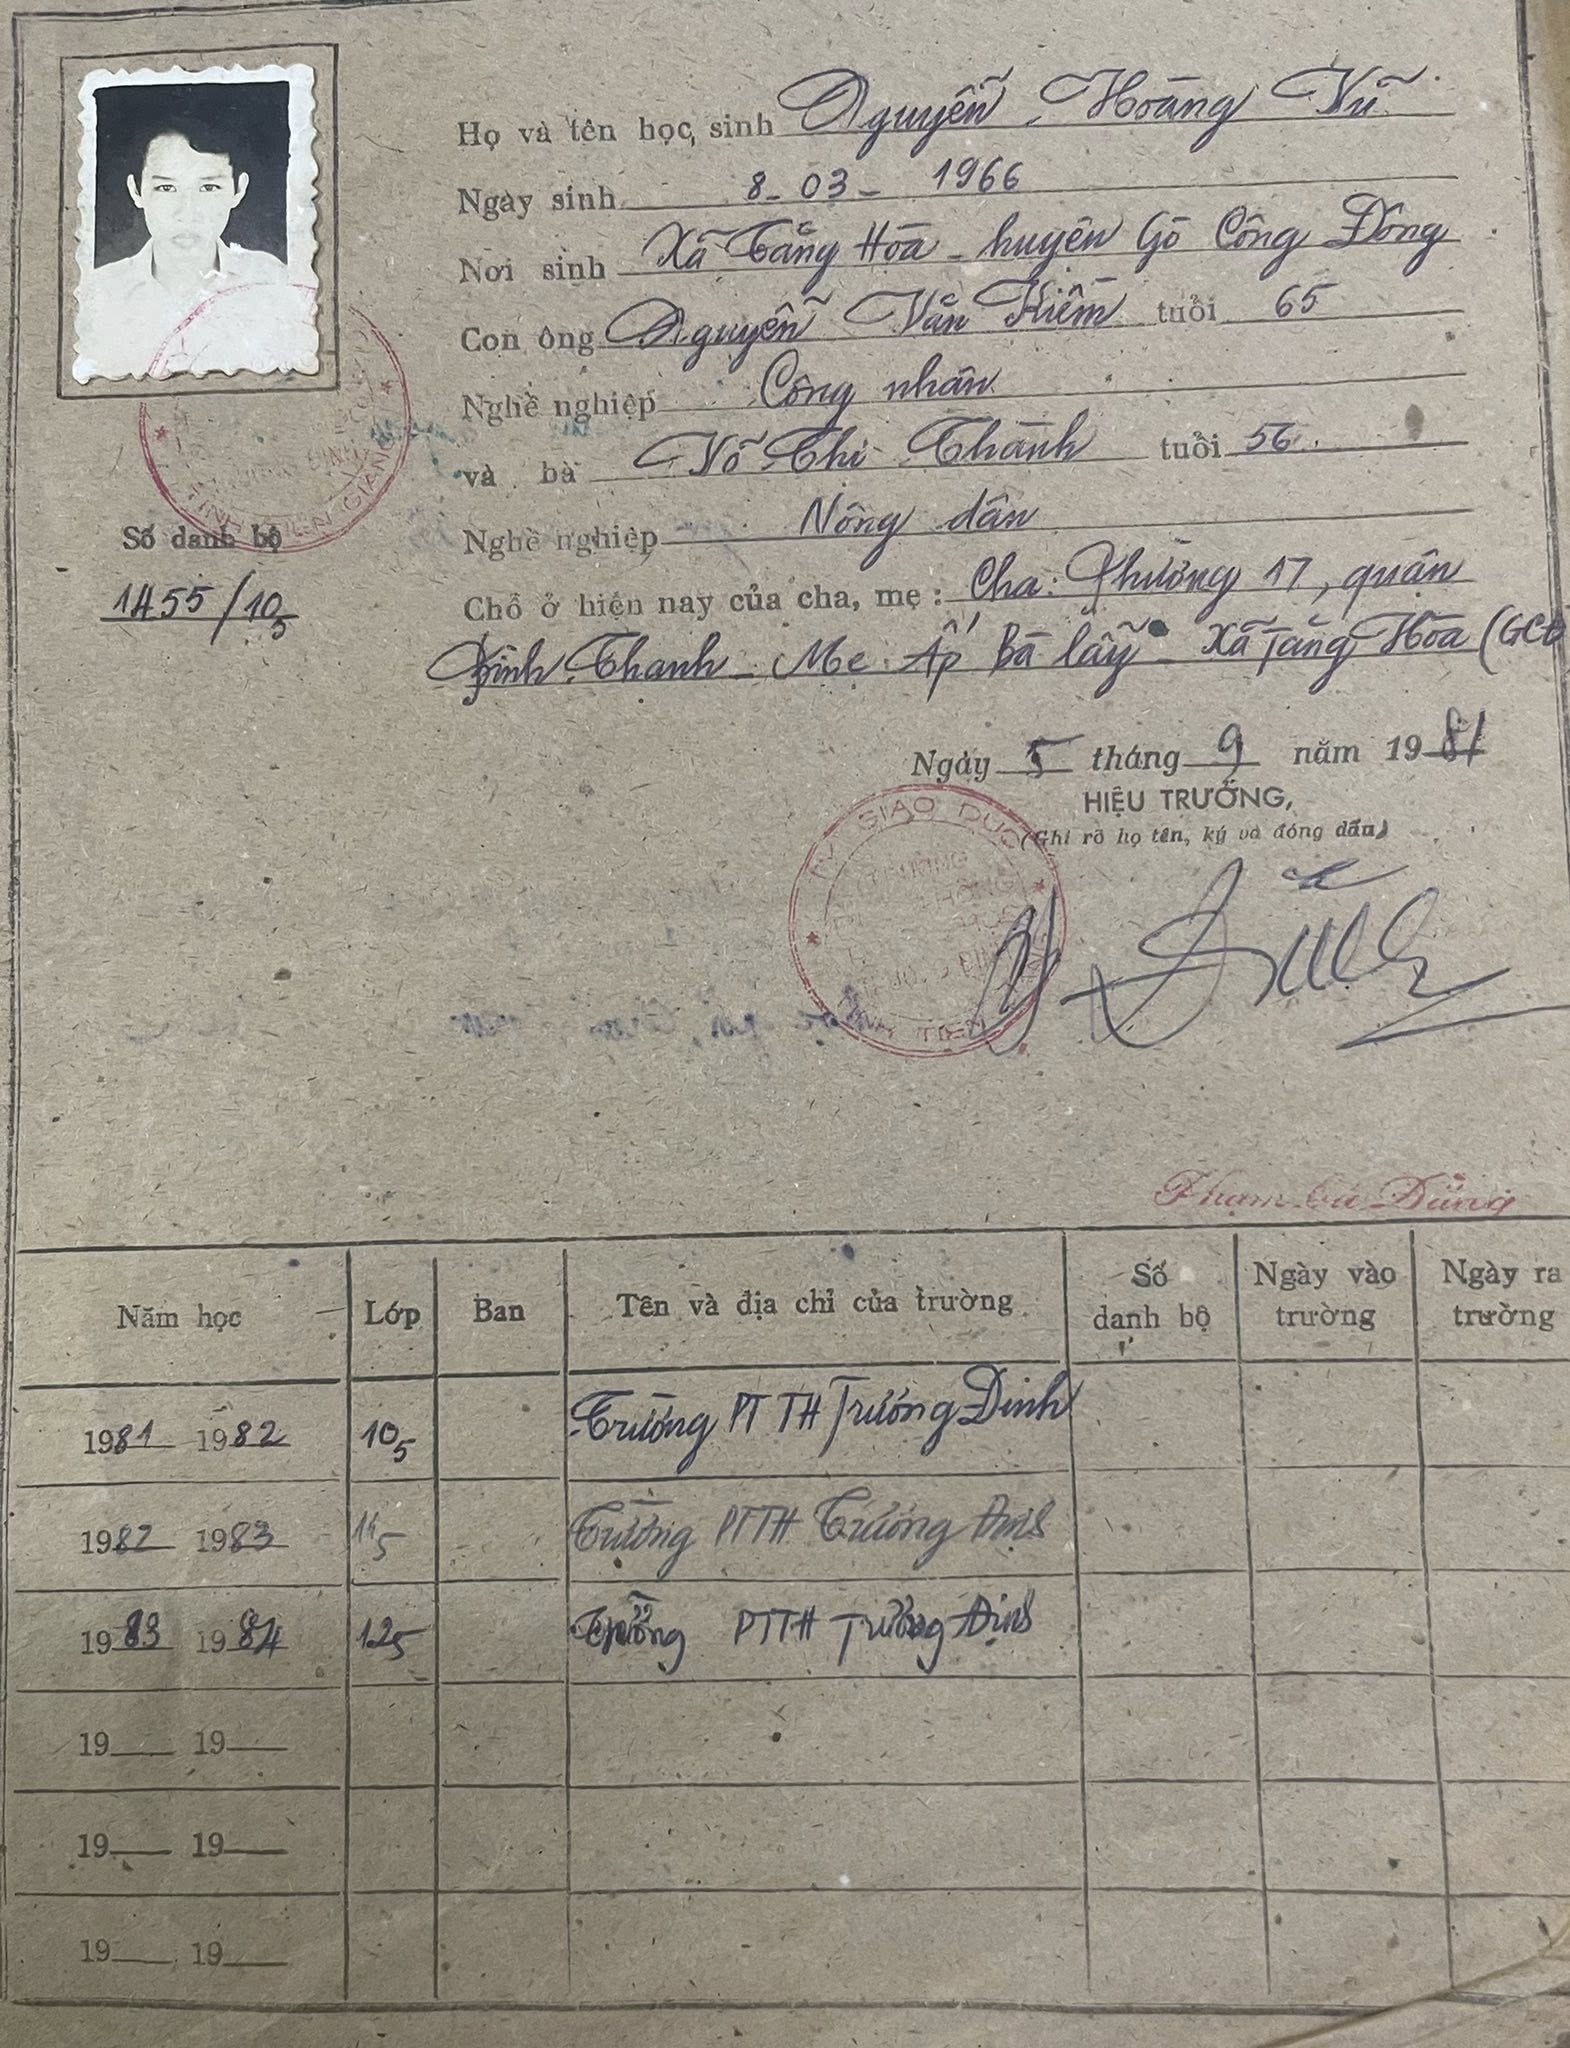 Họ và tên học sinh Nguyễn Hoàng Vũ
Ngày sinh 8-03-1966
Nơi sinh Xã Tăng Hòa - huyện Gò Công Đông
Con ông Nguyễn Văn Kiểm tuổi 65
Nghề nghiệp Công nhân
và bà Võ Thị Thành tuổi 56
Nghề nghiệp Nông dân
Số danh bộ
1455/10₅
Chỗ ở hiện nay của cha, mẹ: Cha: Phường 17, quận
Bình Thạnh - Mẹ: Ấp Bà Lẫy - Xã Tăng Hòa (GCĐ
Ngày 5 tháng 9 năm 1981
HIỆU TRƯỞNG,
(Ghi rõ họ tên, ký và đóng dấu)
TY GIÁO DỤC
TRƯỜNG
TỈNH TIỀN
TỈNH TIỀN GIANG
Dũng
Năm học Lớp Ban Tên và địa chỉ của trường Số danh bộ Ngày vào trường Ngày ra trường
1981 1982 10₅ Trường PTTH Trương Định
1982 1983 11₅ Trường PTTH Trương Định
1983 1984 12₅ Trường PTTH Trương Định
19 19
19 19
19 19